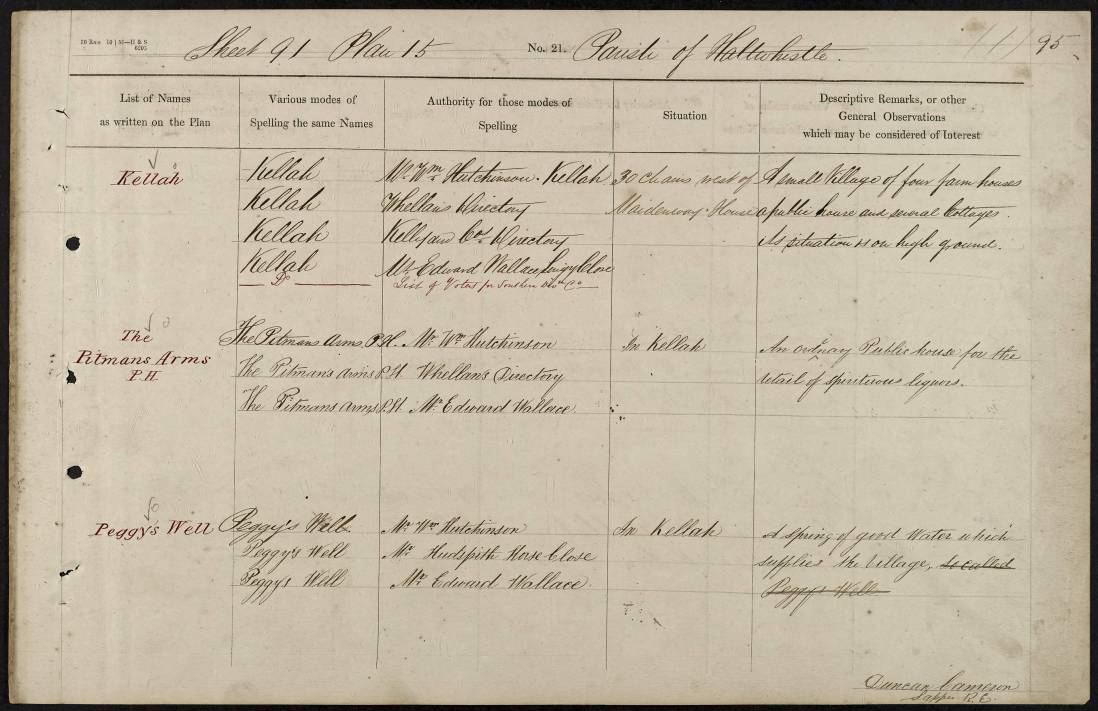 Sheet 91 Plan 15 No. 21. Parish of Haltwhistle. 95
List of Names as written on the Plan
Various modes of Spelling the same Names
Authority for those modes of Spelling
Situation
Descriptive Remarks, or other General Observations which may be considered of Interest
Kellah
Kellah Mr. Wm. Hutchinson. Kellah 30 chains west of A small Village of four farm houses
Kellah Whellans Directory Maidenway House a public house and several Cottages.
Kellah Kelly and Co. Directory Its situation is on high ground.
Kellah Mr. Edward Wallace Close
Do. List of Voters for Southern Divn. Co.
The
Pitmans Arms
P.H.
The Pitmans Arms. P.H. Mr. Wm. Hutchinson In Kellah An ordinary Public house for the
The Pitmans Arms P.H. Whellans Directory retail of spirituous liquors.
The Pitmans Arms P.H. Mr. Edward Wallace.
Peggy's Well
Peggy's Well. Mr. Wm. Hutchinson In Kellah A spring of good Water which
Peggy's Well Mr. Hudspith Horse Close supplies the Village, so called
Peggy's Well Mr. Edward Wallace. Peggy's Well
Duncan Cameron
Sapper R.E.